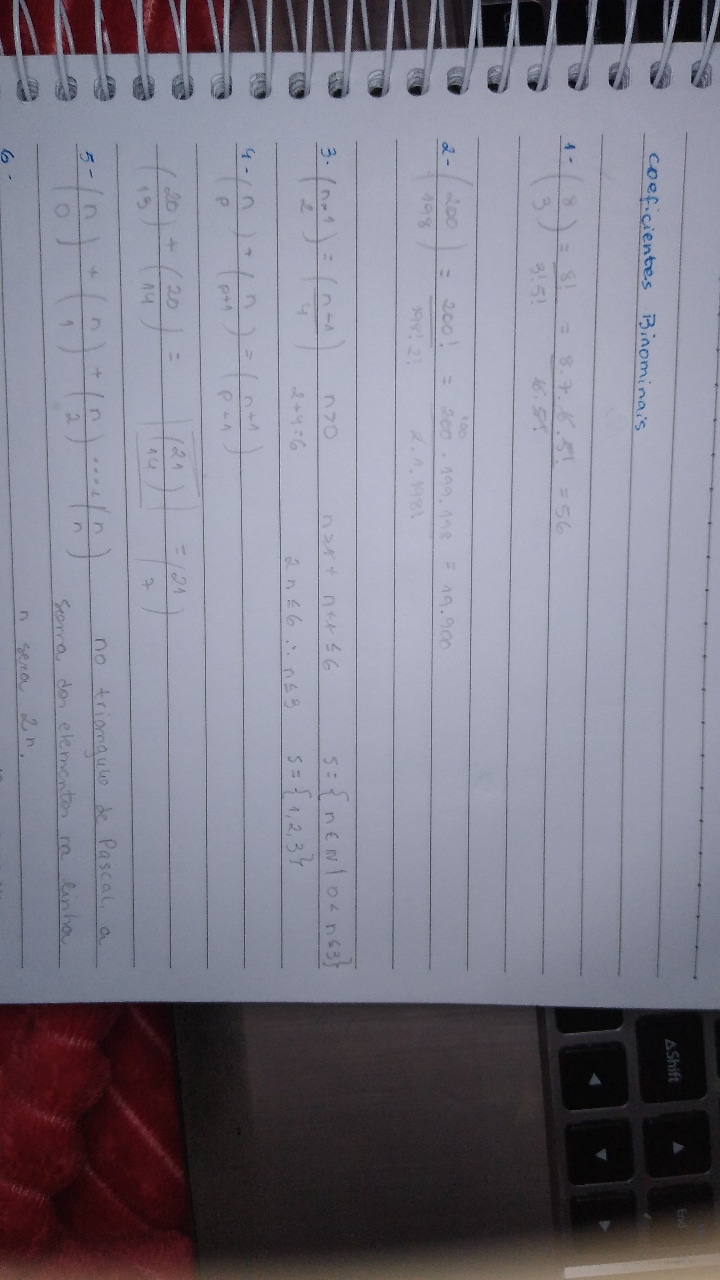 coeficientes Binominais
1- (8 3) = 8!/3!5! = 8.7.6.5!/6.5! = 56
2- (200 198) = 200!/198!2! = 200.199.198/2.1.198! = 19.900
100
3. (n-1 2) = (n-1 4) n>0 n>1+ n+n≤6 S={n∈N|0<n≤3}
2+4=6 2n≤6 ∴ n≤3 S={1,2,3}
4- (n p) + (n p+1) = (n+1 p+1)
(20 13) + (20 14) = (21 14) = (21 7)
5- (n 0) + (n 1) + (n 2) ....+ (n n) no triangulo de Pascal, a
soma dos elementos na linha
n sera 2n.
6-
ΔShift
End